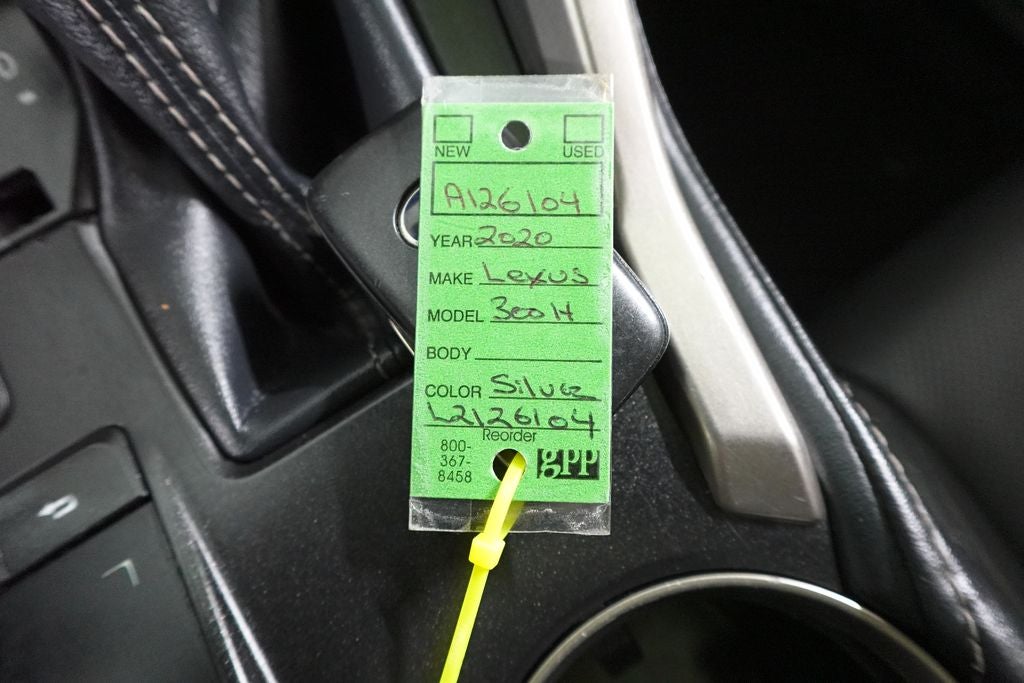 NEW USED
A126104
YEAR 2020
MAKE Lexus
MODEL 300H
BODY
COLOR Silver
L2126104
Reorder
800-
367-
8458
gpp